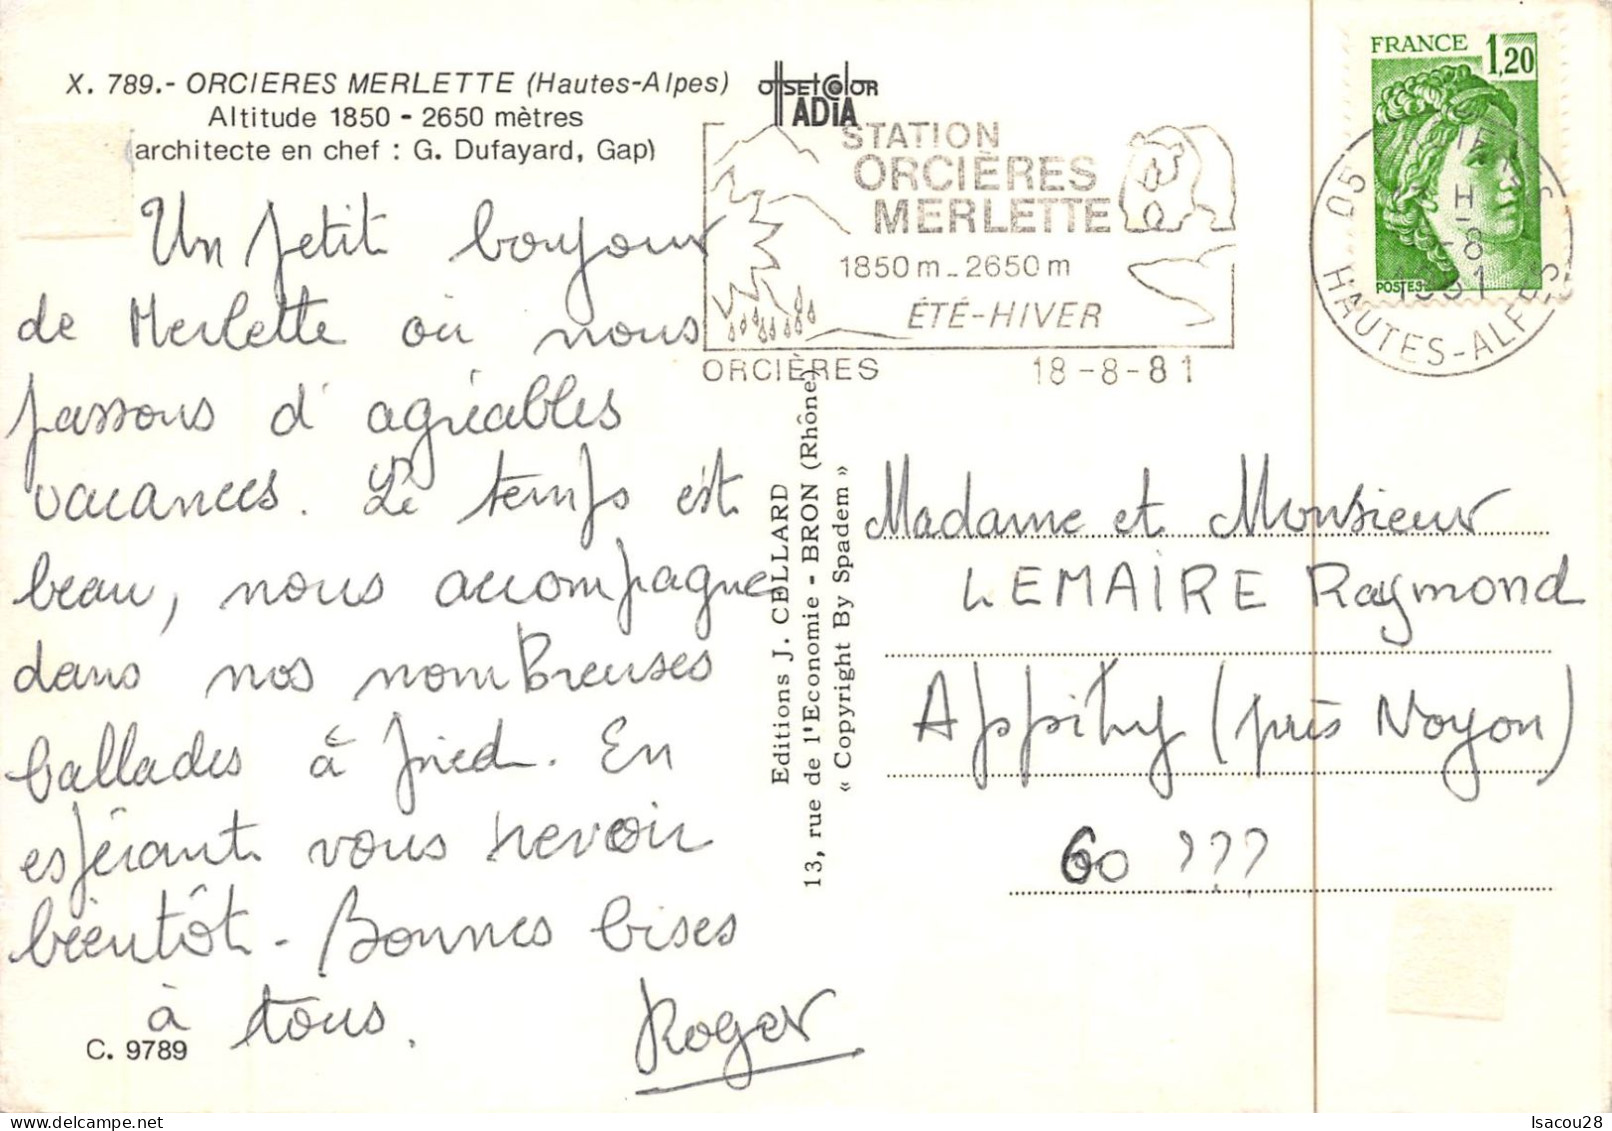 X. 789.- ORCIERES MERLETTE (Hautes-Alpes)
Altitude 1850 - 2650 mètres
(architecte en chef : G. Dufayard, Gap)
OffSET COlOR
ADIA
Un petit bonjour
de Merlette où nous
passons d'agréables
vacances. Le temps est
beau, nous accompagne
dans nos nombreuses
ballades à pied. En
espérant vous revoir
bientôt - Bonnes bises
à tous.
Roger
C. 9789
STATION
ORCIÈRES
MERLETTE
1850 m - 2650 m
ÉTÉ-HIVER
ORCIÈRES 18-8-81
Editions J. CELLARD
13, rue de l'Economie - BRON (Rhône)
« Copyright By Spadem »
FRANCE 1,20
POSTES
05
H
-8
1981
HAUTES-ALPES
Madame et Monsieur
LEMAIRE Raymond
Appilly (près Noyon)
60 ???
Isacou28